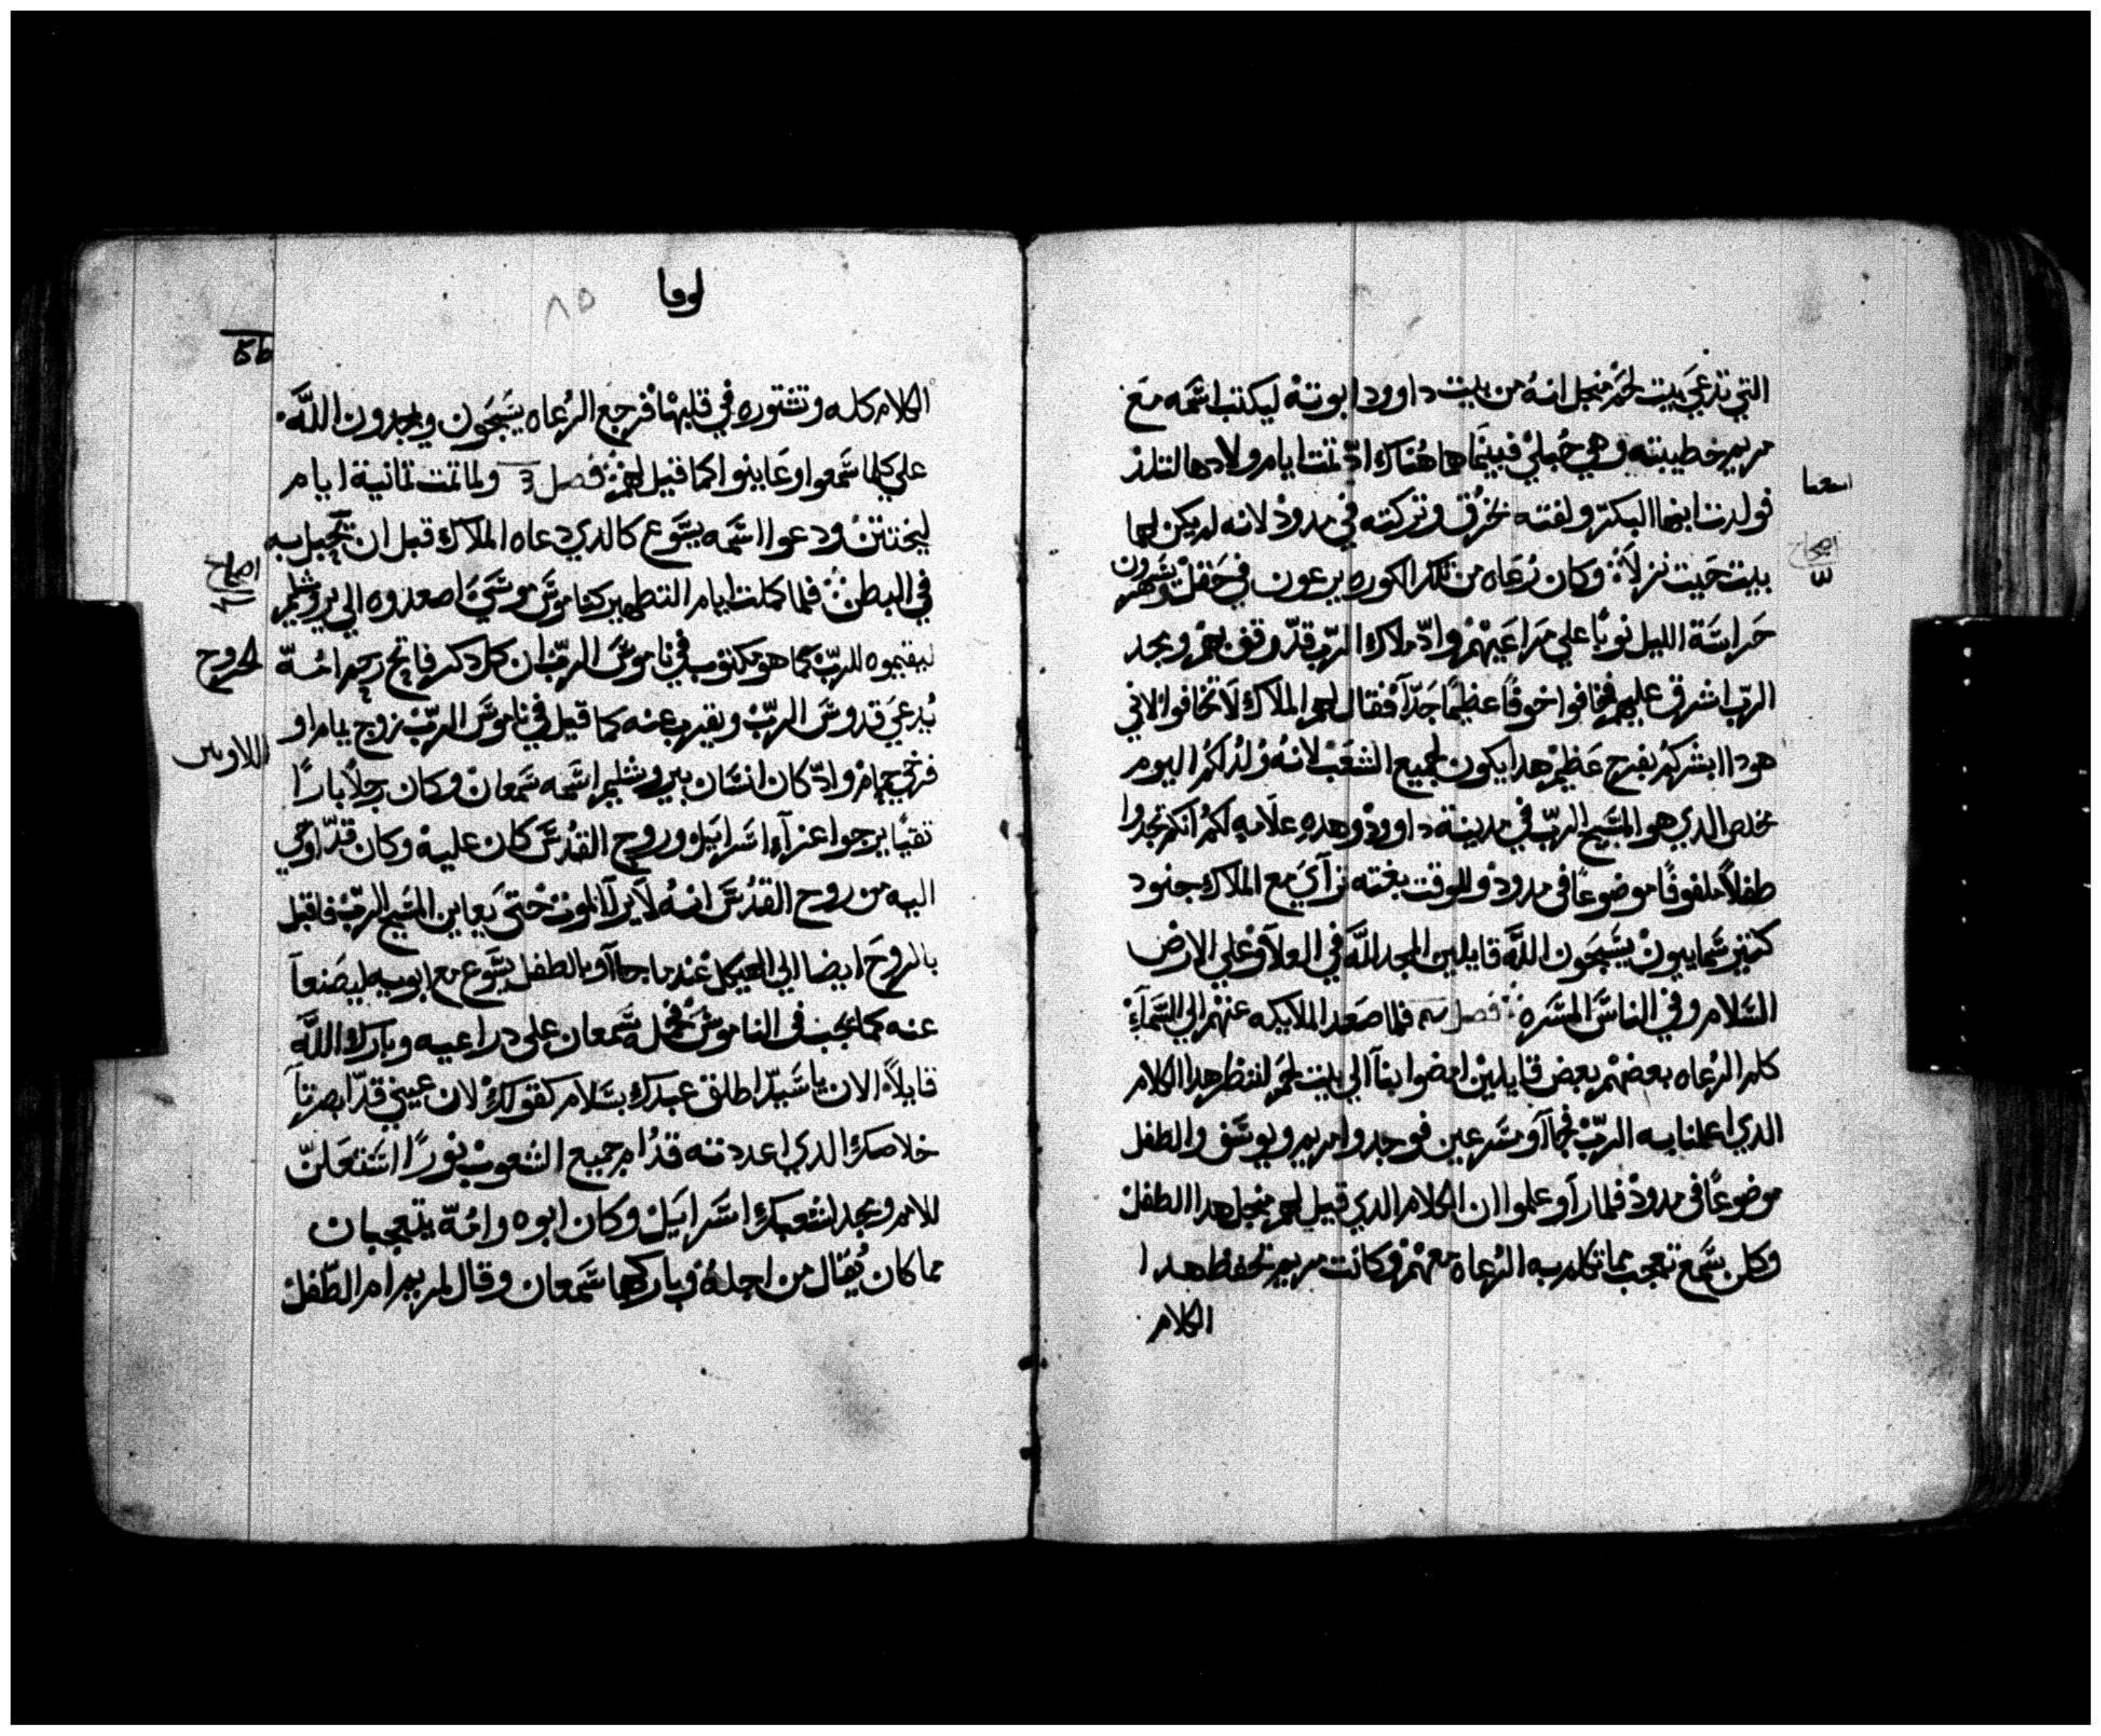 التي تدعي بيت لحم منجل انهُ من بيت داوود ابوته ليكتب اسَمه مع
مريم خطيبته وهي حُبلي فبينما هما هُناك ادّ تمت ايام ولادها لتلد
اشعيا
فولدت ابنها البكر ولفته بخرُق وتركته في مدود لانه لم يكن لهما
اصحاح
بيت حَيت نزلاَ وكان رُعَاه من تلك الكوره يرعون في حَقل وهم يسَهرون
حَراسَة الليل نوبًا علي مَراعَيهم وادّ ملاك الرّب قدّ وقف بهم ومجد
الرّب اشرق عليهم فخافوا خوفًا عظيمًا جَدّاَ فقال لهم الملاك لاَ تخافوا لاني
هودا ابشركم بفرح عَظيم هدا يكون لجميع الشعَب لانهُ وُلدُ لكم اليوم
مخلص الدي هو المسَيح الرّب في مدينة داوود وهده علاَمه لكم انكم تجدوا
طفلاً ملفوفًا موضوعًا في مدود وللوقت بغته ترآيَ مع الملاك جنود
كتير سَماييون يسَبحَون اللهَ قايلين المجد للهَ في العلاَ وعلي الارض
السَلام وفي الناسَ المسَره فصل فلما صَعد الملايكه عنهم الي السَمآء
كلم الرُعاه بعضهم بعض قايلين امضوا بنآ الي بيت لحم لننظر هدا الكلام
الدي اعلمنا به الرّب فجاآو مسَرعين فوجدوا مريم ويوسَف والطفل
موضوعًا في مدود فلما رآو علموا ان الكلام الدي قيل لهم منجل هدا الطفل
وكلن سَمع تعجب مما تكلم به الرُعاه معهم وكانت مريم تحفظ هدا
الكلام
لوقا
٨٥
الكلام كله وتشتوره في قلبها فرجع الرُعاه يسَبحَون ويمجدون اللهَ
علي كلما سَمعوا وعَاينوا كما قيل لهم فصل ولما تمت تمانية ايام
ليختتن ودعوا اسَمه يسَوع كالدي دعاه الملاك قبل ان تحبل به
اصحاح
في البطن فلما كملت ايام التطهير كناموسَ موسَيَ اصعدوه الي يروشليم
الخروج
ليقيموه للربّ كما هو مكتوب في ناموسَ الربّ ان كل دكر فاتح رحم امُه
يُدعيَ قدوسَ الربّ ويقرب عنه كما قيل في ناموسَ الربّ زوج يمام او
اللاويين
فرخي حمام وادّ كان انسَان بيروشليم اسَمه سَمعان وكان رجلاً بارًا
تقيًا يرجوا عزآء اسَراييل وروح القدُسَ كان عليه وكان قدّ اوحي
اليه من روح القدُسَ انهُ لاَ يرآ الموت حَتيَ يعاين المسَيح الربّ فاقبل
بالروحَ ايضا الي الهيكل عندما جاآو بالطفل يسَوع مع ابويه ليصَنعاَ
عنه كما يجب في الناموسَ فحَمله سَمعان علي دراعيه وبارك اللهَ
قايلاً الان يا سَيدّ اطلق عبدك بسَلام كقولك لان عينيَ قدّ ابصرتاَ
خلاصك الدي اعددته قدُام جميع الشعوب نورًا اسَتعَلنّ
للامم ومجد لشعبك اسَراييل وكان ابوه وامُه يتعجبان
مما كان يُقال من اجله وباركهما سَمعان وقال لمريم ام الطّفل